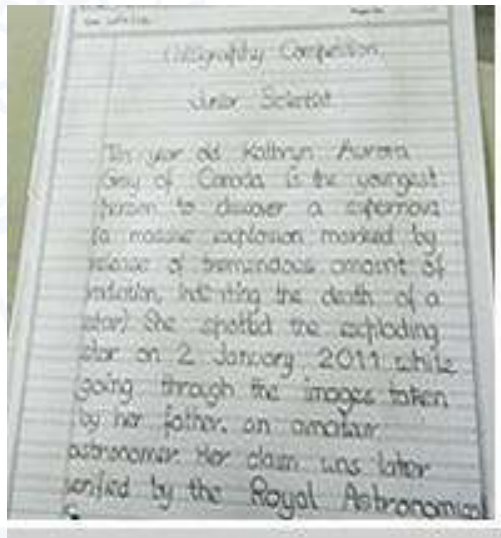 Calligraphy Competition
Junior Scientist
Ten year old Kathryn Aurora
Gray of Canada is the youngest
person to discover a supernova
(a massive explosion marked by
release of tremendous amount of
radiation, indicating the death of a
star) She spotted the exploding
star on 2 January 2011 while
going through the images taken
by her father, an amateur
astronomer. Her claim was later
verified by the Royal Astronomical